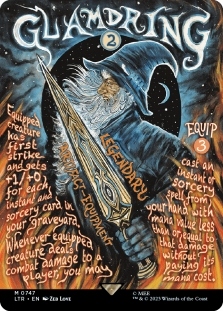 GLAMDRING
2
Equipped
creature
has
first
strike
and gets
+1/+0
for each
instant and
sorcery card in
your graveyard.
Whenever equipped
creature deals
combat damage to a
player, you may
LEGENDARY
ARTIFACT EQUIPMENT
EQUIP
3
cast an
instant or
sorcery
spell from
your hand with
mana value less
than or equal to
that damage
without
paying its
mana cost.
M 0747
LTR • EN Zed Love
© MEE
™ & © 2023 Wizards of the Coast